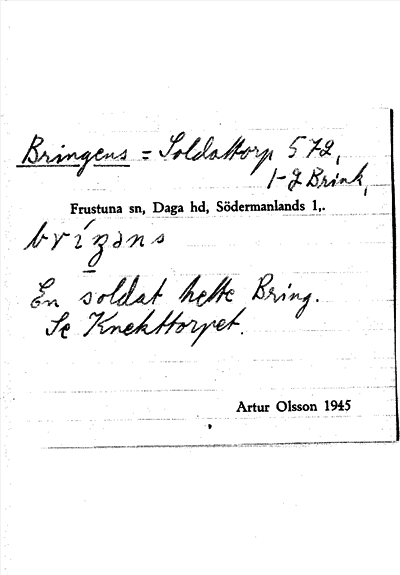 Bringens = Soldattorp 572,
Brink,
Frustuna sn, Daga hd, Södermanlands l,.
En soldat hette Bring.
Se Knekttorpet.
Artur Olsson 1945